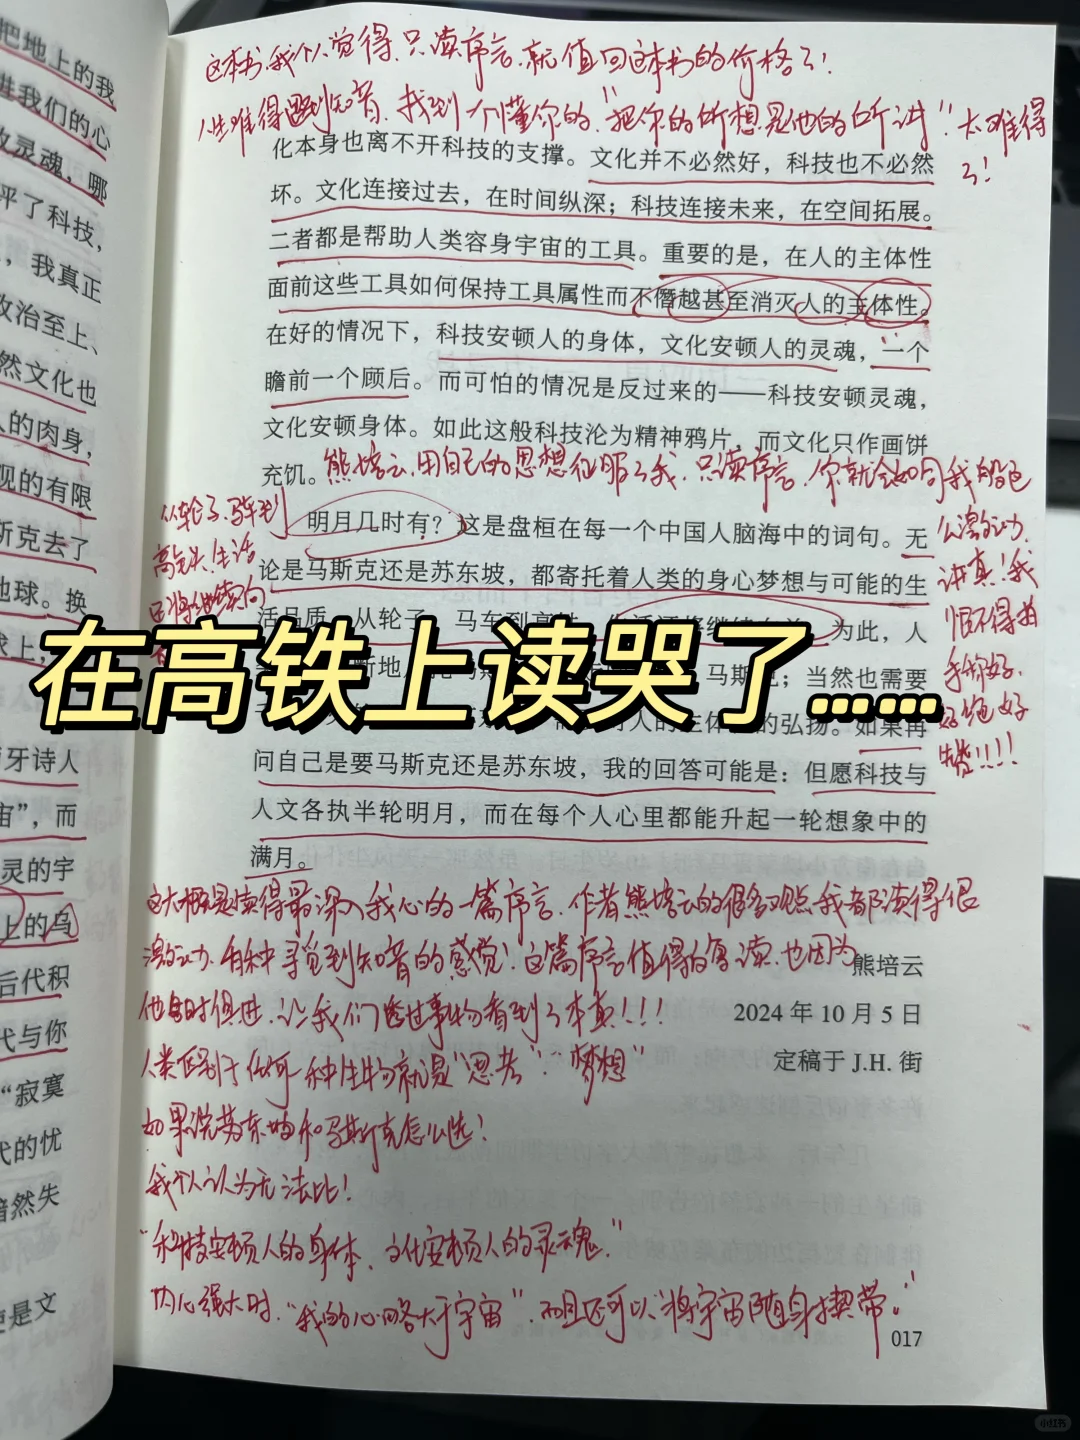 把地上的我
进我们的心
放灵魂，哪
评了科技，
，我真正
政治至上、
然文化也
人的肉身，
观的有限
斯克去了
地球。换
球上，
萄牙诗人
宙”，而
灵的宇
上的乌
后代积
代与你
“寂寞
代的忧
黯然失
更是文
这本书，我个人觉得，只读序言，就值回这本书的价格了！
人生难得遇到知音，找到个懂你的，“把你的所想是他的所讲”，太难得
了！
化本身也离不开科技的支撑。文化并不必然好，科技也不必然
坏。文化连接过去，在时间纵深；科技连接未来，在空间拓展。
二者都是帮助人类容身宇宙的工具。重要的是，在人的主体性
面前这些工具如何保持工具属性而不僭越甚至消灭人的主体性。
在好的情况下，科技安顿人的身体，文化安顿人的灵魂，一个
瞻前一个顾后。而可怕的情况是反过来的——科技安顿灵魂，
文化安顿身体。如此这般科技沦为精神鸦片，而文化只作画饼
充饥。
熊培云，用自己的思想征服了我，只读序言，你就会如同我般这
么激动，
讲真！我
恨不得拍
手称好，
好绝好
赞！！！！
从轮子、马车到
高铁，生活
还将继续向
明月几时有？这是盘桓在每一个中国人脑海中的词句。无
论是马斯克还是苏东坡，都寄托着人类的身心梦想与可能的生
活品质。从轮子、马车到高铁，生活还将继续向前。为此，人
断地
马斯克；当然也需要
人的主体性的弘扬。如果再
在高铁上读哭了……
问自己是要马斯克还是苏东坡，我的回答可能是：但愿科技与
人文各执半轮明月，而在每个人心里都能升起一轮想象中的
满月。
这大概是读得最深入我心的一篇序言，作者熊培云的很多观点我都读得很
激动，有种寻觅到知音的感觉！这篇序言值得的复读，也因为
熊培云
他与时俱进，让我们透过事物看到了本真！！！
2024 年 10 月 5 日
人类区别于任何一种生物就是“思考”“梦想”
定稿于 J.H. 街
如果说苏东坡和马斯克怎么选？
我个人认为无法比！
“科技安顿人的身体，文化安顿人的灵魂。”
内心强大时，“我的心略大于宇宙”，而且还可以“将宇宙随身携带。”
017
小红书